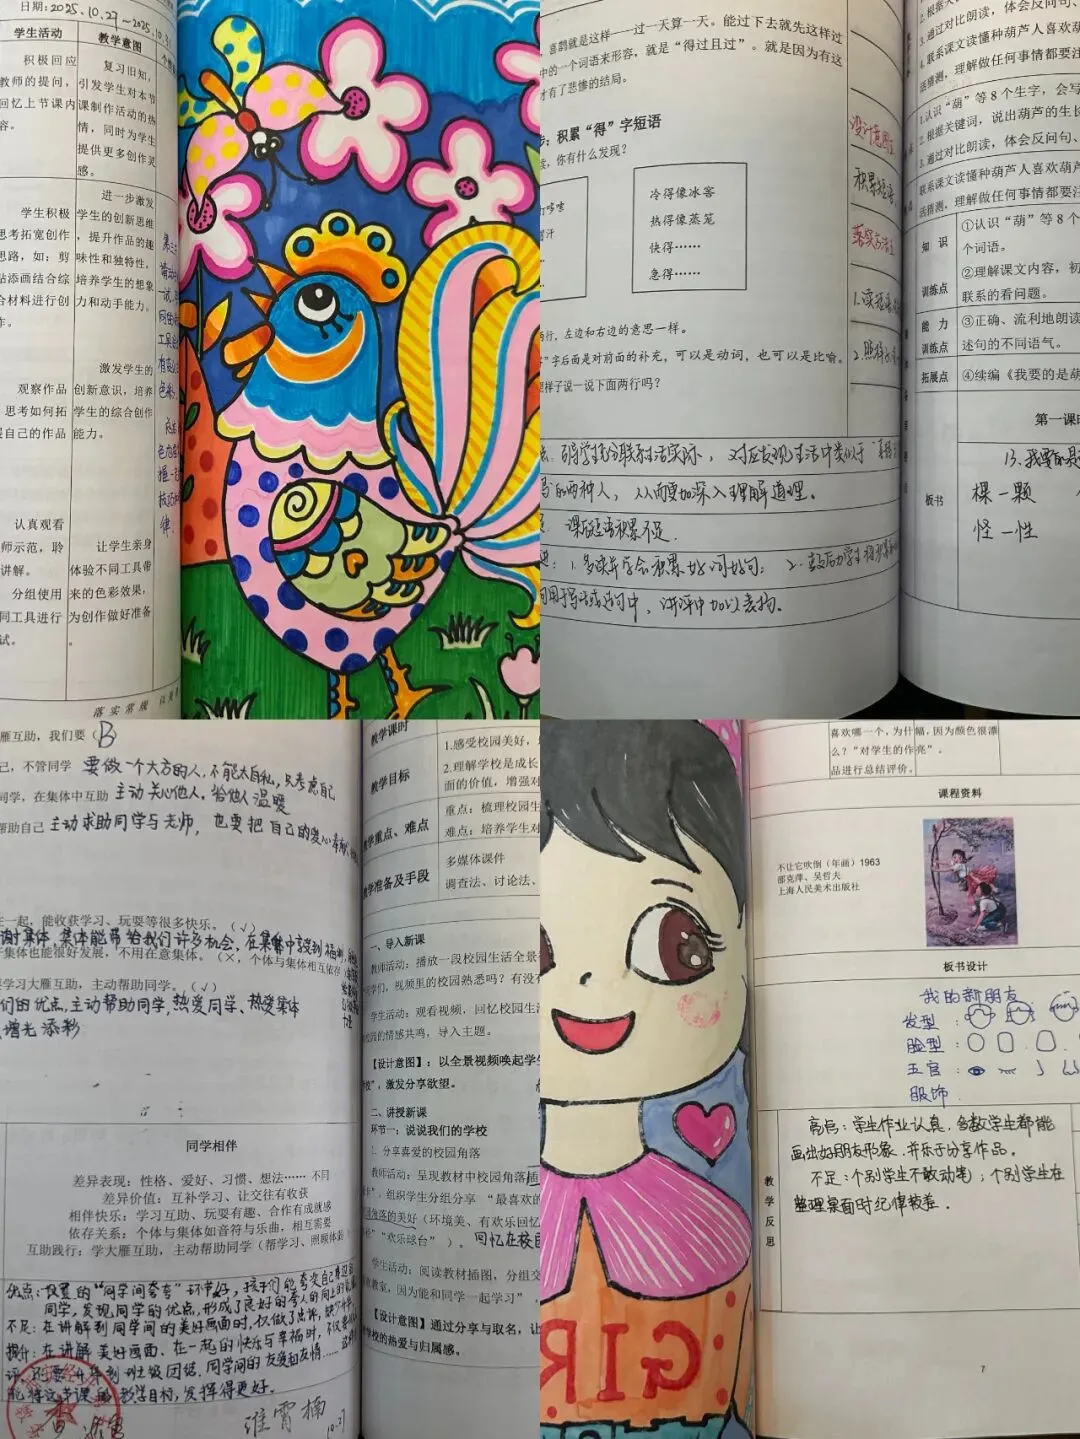 日期:2025.10.27~2025.10.31
学生活动
教学意图
积极回应
教师的提问,
回忆上节课内
容。
复习旧知,
引发学生对本节
课制作活动的热
情,同时为学生
提供更多创作灵
感。
学生积极
思考拓宽创作
思路,如:剪
贴添画结合综
合材料进行创
作。
进一步激发
学生的创新思维
,提升作品的趣
味性和独特性,
培养学生的想象
力和动手能力。
观察作品
思考如何拓
展自己的作品
激发学生的
创新意识,培养
学生的综合创作
能力。
认真观看
师示范,聆
讲解。
分组使用
同工具进行
试。
让学生亲身
体验不同工具带
来的色彩效果,
为创作做好准备
。
落实常规
喜鹊就是这样——过一天算一天。能过下去就先这样过
中的一个词语来形容,就是“得过且过”。就是因为有这
才有了悲惨的结局。
步:积累“得”字短语
读,你有什么发现?
冷得像冰客
热得像蒸笼
快得……
急得……
两行,左边和右边的意思一样。
”字后面是对前面的补充,可以是动词,也可以是比喻。
照样子说一说下面两行吗?
设计意图:
积累短语,
落实方法:
的两种人,从而更加深入理解道理。
课后短语积累不足.
1.多读并学会积累好词好句;2.
2.根据
3.通过对比朗读,体会反问句、
4.联系课文读懂种葫芦人喜欢葫
活猜测,理解做任何事情都要注
1.认识“葫”等8个生字,会写
2.根据关键词,说出葫芦的生长
3.通过对比朗读,体会反问句、
联系课文读懂种葫芦人喜欢葫芦
活猜测,理解做任何事情都要注
知识
训练点
①认识“葫”等8个
个词语。
②理解课文内容,初
联系的看问题。
能力
训练点
③正确、流利地朗读
述句的不同语气。
拓展点
④续编《我要的是葫
第一课时
板书
13.我要的是
棵—颗
怪—性
雁互助,我们要(B)
己,不管同学 要做一个大方的人,不能太自私,只考虑自己
同学,在集体中互助 主动关心他人,给他人温暖
帮助自己 主动求助同学与老师,也要把自己的爱心奉献
在一起,能收获学习、玩耍等很多快乐。(√)
谢集体,集体能带给我们许多机会,在集体中享受到福利,
集体也能很好发展,不用在意集体。(×,个体与集体相互依存
要学习大雁互助,主动帮助同学。(√)
们的优点,主动帮助同学,热爱同学、热爱集体
增光添彩
同学相伴
差异表现:性格、爱好、习惯、想法……不同
差异价值:互补学习、让交往有收获
相伴快乐:学习互助、玩耍有趣、合作有成就感
依存关系:个体与集体如音符与乐曲,相互需要
互助践行:学大雁互助,主动帮助同学(帮学习、照顾体
优点:设置的“同学间夸夸”环节好,孩子们能夸夸自己身边的
同学,发现同学的优点,形成了良好的夸人的向上的
不足:在讲解到同学间的美好画面时,仅做了点评,缺少
提升:在讲解美好画面、在一起的快乐与幸福时,不仅要
评,还要升华到班级团结、同学间的友爱和友情……
能将这节课的教学目标,发挥得更好。
10.27
教学课时
教学目标
1.感受校园美好,
2.理解学校是成长
面的价值,增强对
教学重点、难点
重点:梳理校园生
难点:培养学生对
教学准备及手段
多媒体课件
调查法、讨论法、
一、导入新课
教师活动:播放一段校园生活全景
同学们,视频里的校园熟悉吗?有没有
学生活动:观看视频,回忆校园生
校园的情感共鸣,导入主题。
【设计意图】:以全景视频唤起学生
校”,激发分享欲望。
二、讲授新课
环节一:说说我们的学校
1.分享喜爱的校园角落
教师活动:呈现教材中校园角落插
卡”,组织学生分组分享“最喜欢的
园角落的美好(环境美、有欢乐回忆
”“欢乐球台”)。回忆在校园
学生活动:阅读教材插图,分组交
欢教室,因为能和同学一起学习”,
【设计意图】通过分享与取名,让
学校的热爱与归属感。
GIR
喜欢哪一个,为什
么?“对学生的作
品进行总结评价。
幅,因为颜色很漂
亮”。
课程资料
不让它吹倒(年画)1963
邵克萍、吴哲夫
上海人民美术出版社
板书设计
我的新朋友
发型:
脸型:
五官:
服饰
教学反思
亮点:学生作业认真,多数学生都能
画出好朋友形象,并乐于分享作品。
不足:个别学生不敢动笔;个别学生在
整理桌面时纪律较差。
7